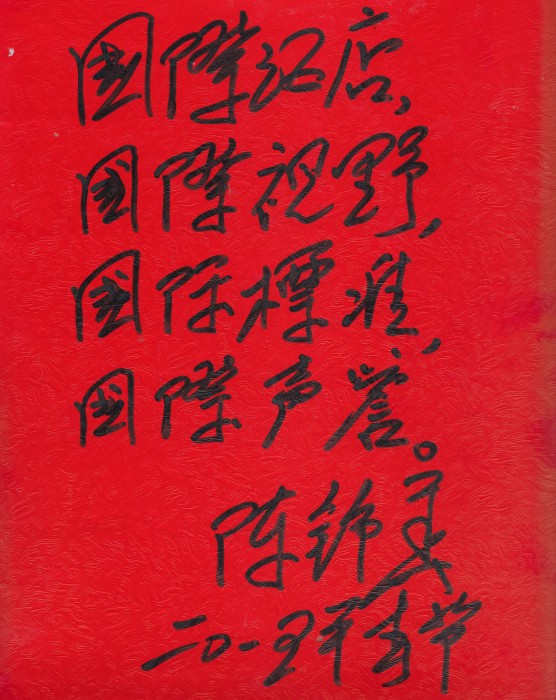 国際酒店，
国際視野，
国际標准，
国際声誉。
陈锦
二〇一五年春节